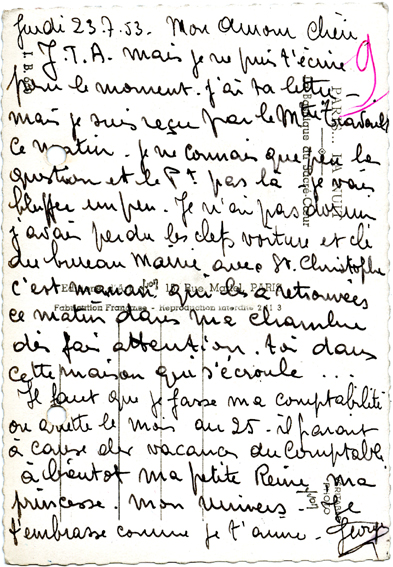 Jeudi 23.7.53. Mon Amour Chéri
J.T.A. mais je ne puis t'écrire
pour le moment. j'ai ta lettre -
mais je suis reçu par le Mtre Travaux
ce matin. je ne connais que peu la
question et le Pt pas là - je vais
bluffer un peu. Je n'ai pas dormi
j'avais perdu les clefs voiture et clé
du bureau Mairie avec St. Christophe
c'est maman qui les a retrouvées
ce matin dans ma chambre
dis fais attention. toi dans
cette maison qui s'écroule ...
Il faut que je fasse ma comptabilité
on arrête le mois au 25. il parait
à cause des vacances du Comptable
à bientôt ma petite Reine ma
princesse. mon univers - Je
t'embrasse comme je t'aime. Georges
9
Basilique du Sacré-Cœur
Rue Martel, PARIS
Fabrication Française - Reproduction interdite